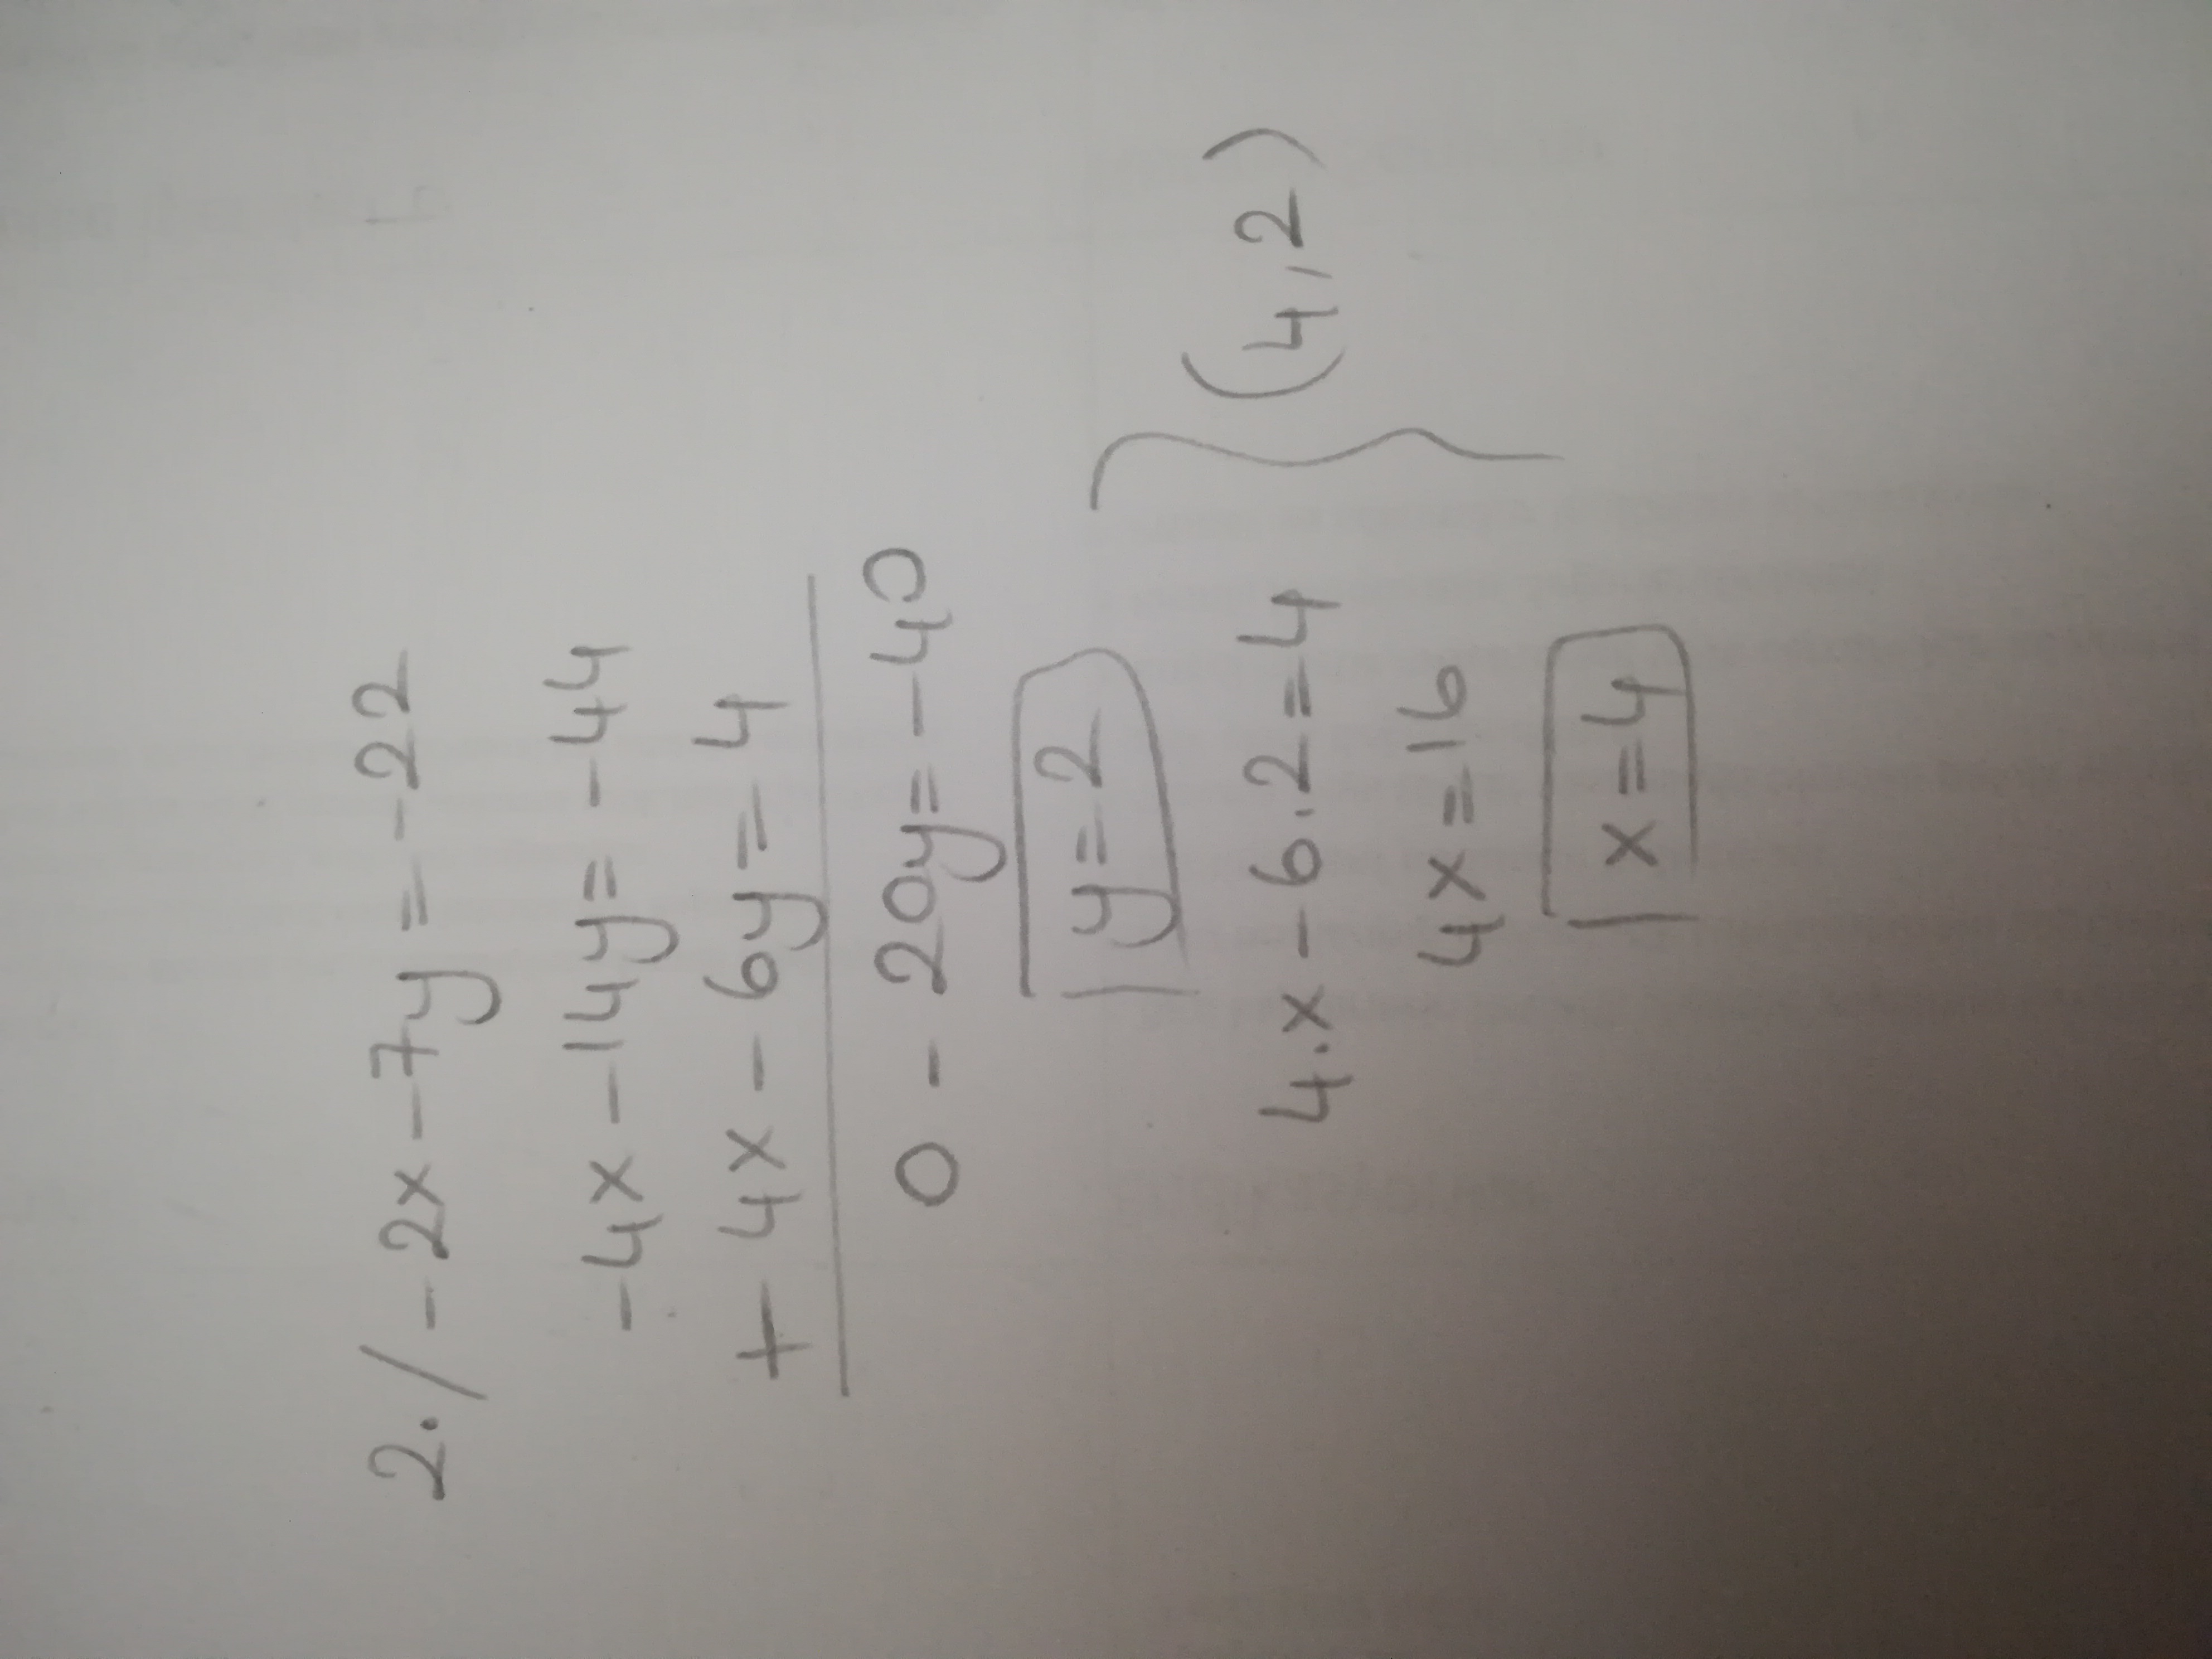 2./ -2x-7y=-22
-4x-14y=-44
+ 4x-6y=4
0-20y=-40
y=2
4.x-6.2=4
4x=16
x=4
(4,2)